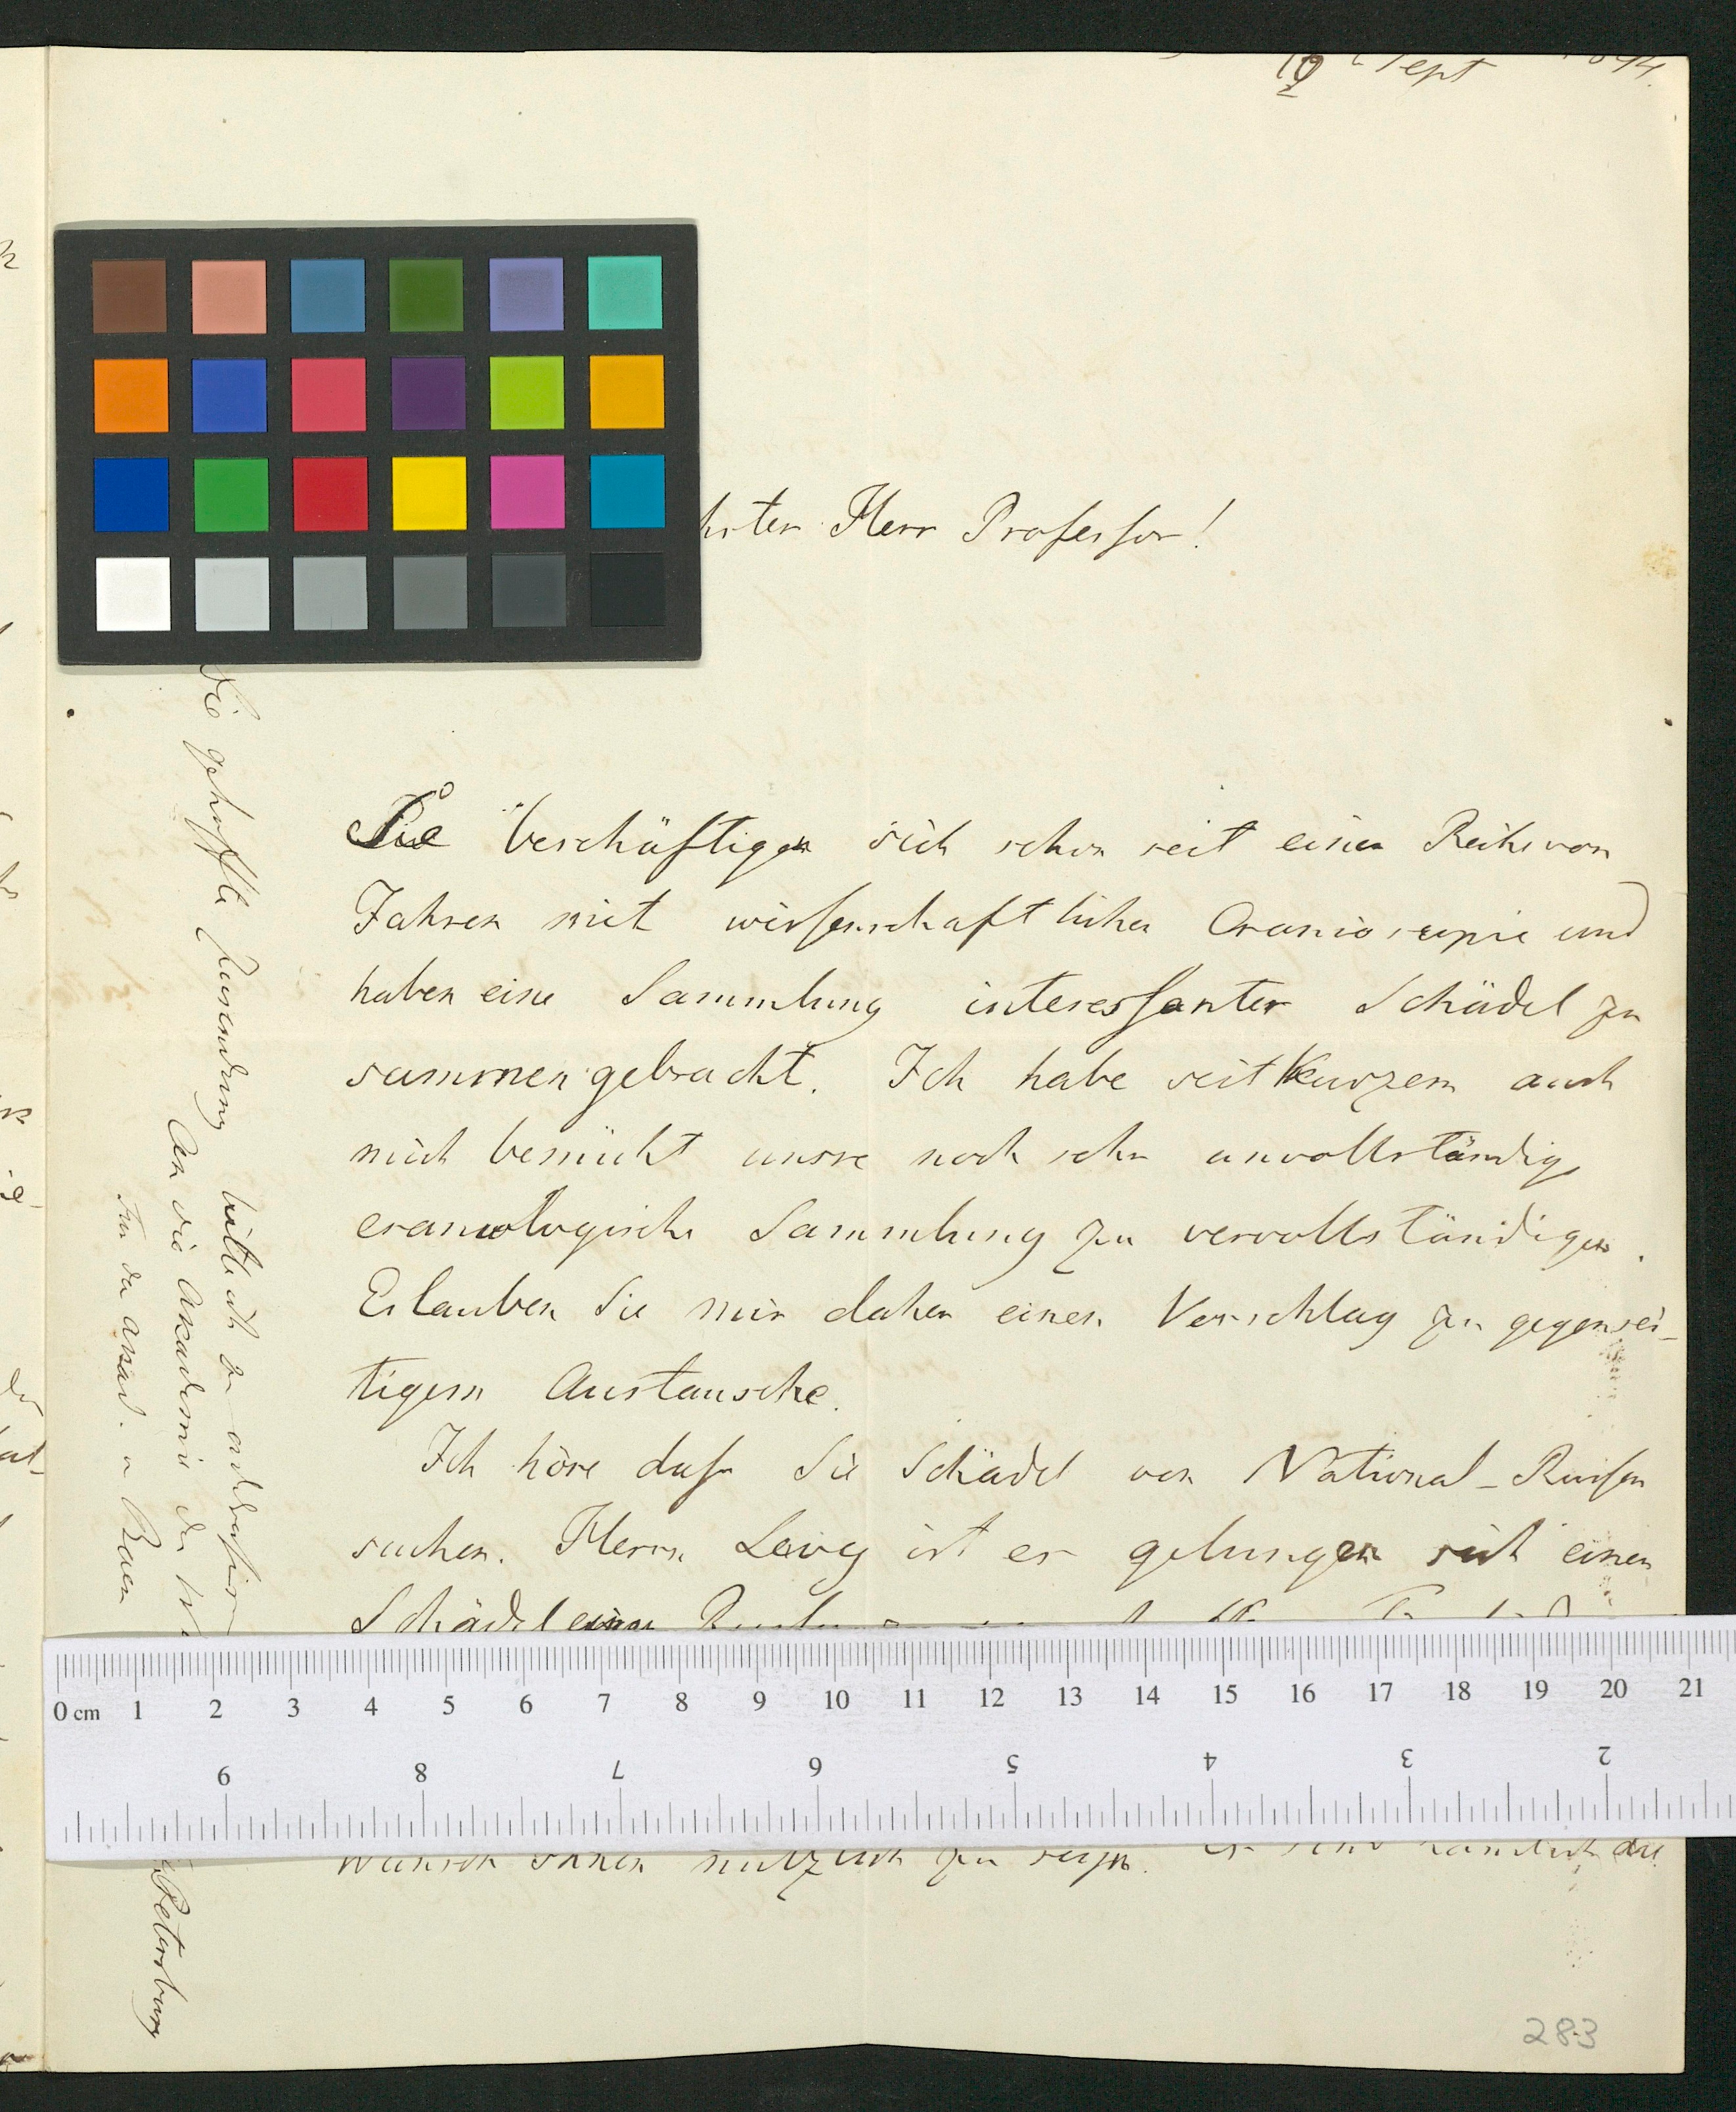 Sept
Herr Professor!
Sie beschäftigen sich schon seit einer Reihe von
Jahren mit wissenschaftlicher Cranioscopie und
haben eine Sammlung interessanter Schädel zu
sammengebracht. Ich habe seit Kurzem auch
mich bemüht unsre noch sehr unvollständige
craniologische Sammlung zu vervollständigen.
Erlauben Sie mir daher einen Vorschlag zu gegensei-
tigem Austausche.
Ich höre dass Sie Schädel von National-Russen
suchen. Herrn ist es gelungen sich einen
Schädel eines
Wunsch Ihnen nützlich zu seyn. Es sind nämlich die
Die gehoffte Zusendung bitte ich zu addressiren
An die Akademie der
Für den Akad. v Baer
Petersburg
283
0 cm 1 2 3 4 5 6 7 8 9 10 11 12 13 14 15 16 17 18 19 20 21
9 8 7 6 5 4 3 2